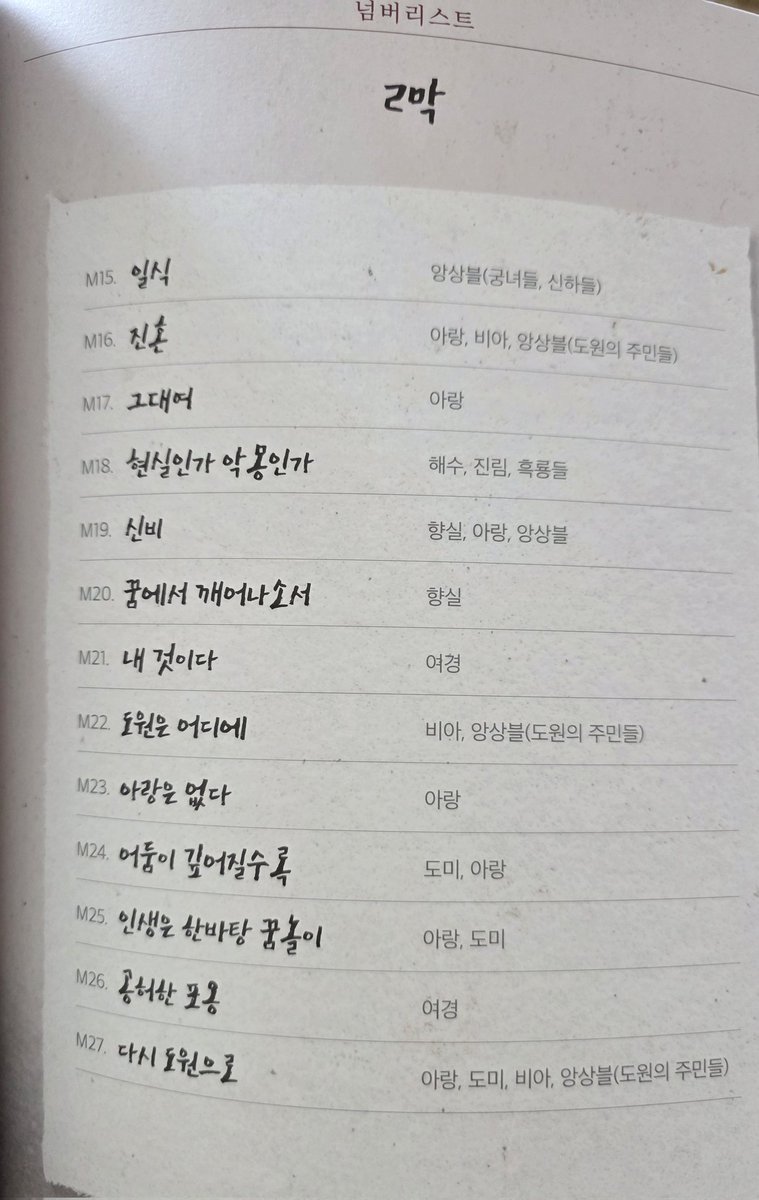 넘버리스트
2막
M15. 일식 앙상블(궁녀들, 신하들)
M16. 진혼 아랑, 비아, 앙상블(도원의 주민들)
M17. 그대여 아랑
M18. 현실인가 악몽인가 해수, 진림, 흑룡들
M19. 신비 향실, 아랑, 앙상블
M20. 꿈에서 깨어나소서 향실
M21. 내 것이다 여경
M22. 도원은 어디에 비아, 앙상블(도원의 주민들)
M23. 아랑은 없다 아랑
M24. 어둠이 깊어질수록 도미, 아랑
M25. 인생은 한바탕 꿈놀이 아랑, 도미
M26. 공허한 포옹 여경
M27. 다시 도원으로 아랑, 도미, 비아, 앙상블(도원의 주민들)